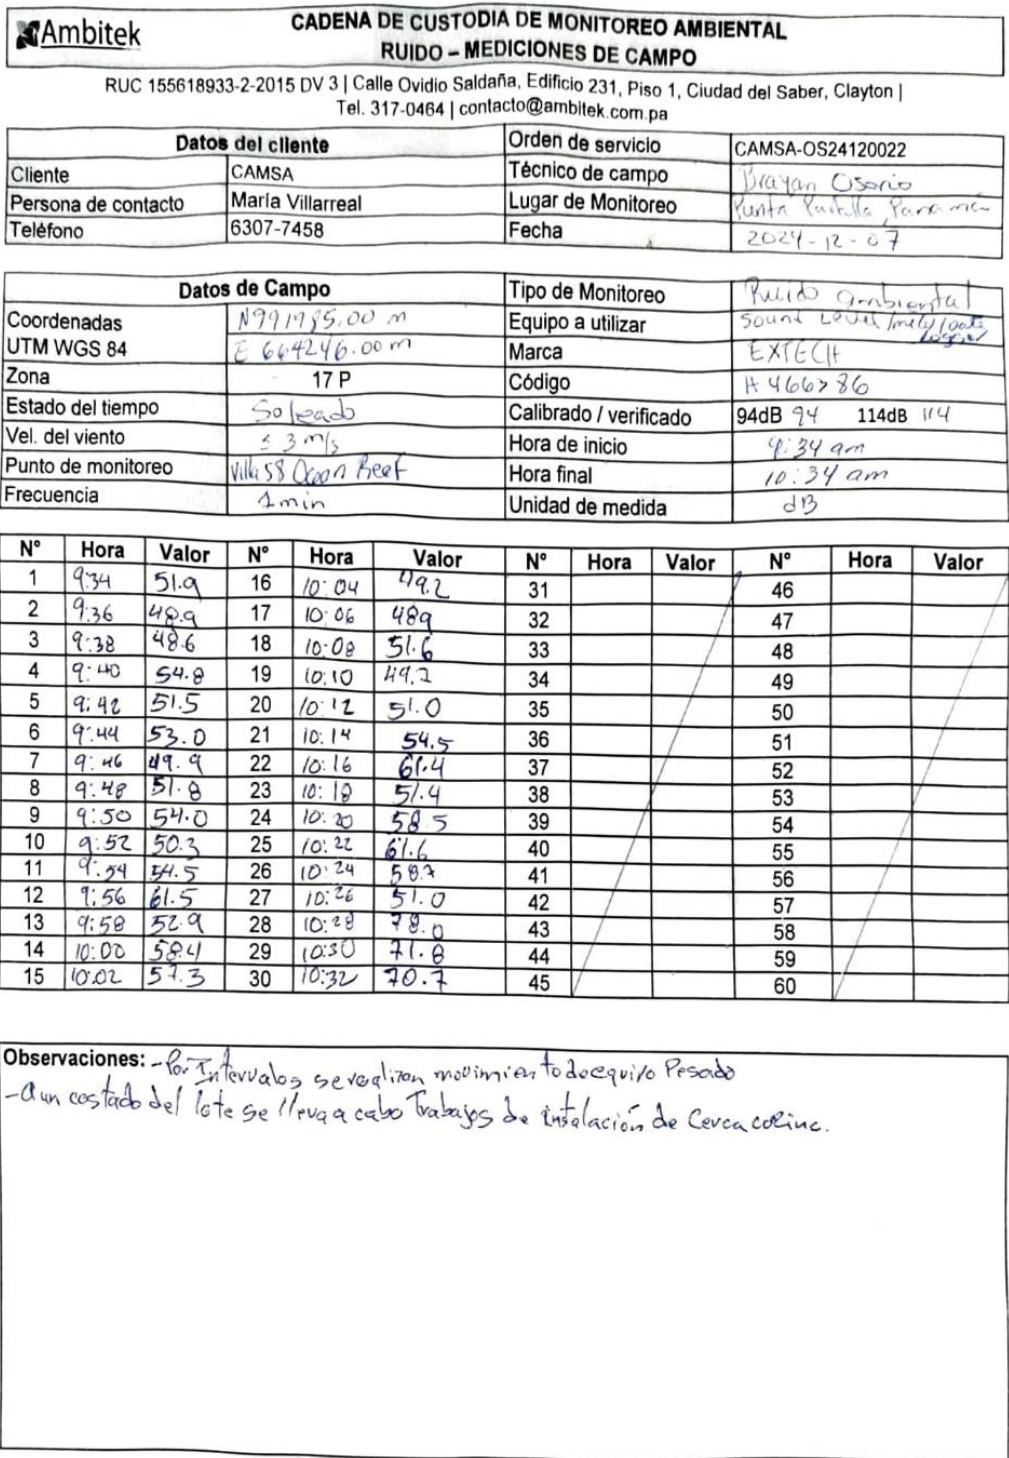 Ambitek
CADENA DE CUSTODIA DE MONITOREO AMBIENTAL
RUIDO – MEDICIONES DE CAMPO
RUC 155618933-2-2015 DV 3 | Calle Ovidio Saldaña, Edificio 231, Piso 1, Ciudad del Saber, Clayton |
Tel. 317-0464 | contacto@ambitek.com.pa
Datos del cliente Orden de servicio CAMSA-OS24120022
Cliente CAMSA Técnico de campo Brayan Osorio
Persona de contacto María Villarreal Lugar de Monitoreo Punta Panamá
Teléfono 6307-7458 Fecha 2024-12-07
Datos de Campo Tipo de Monitoreo Ruido ambiental
Coordenadas N991985.00 m Equipo a utilizar Sound Level
UTM WGS 84 E 664246.00 m Marca EXTECH
Zona 17 P Código H 466786
Estado del tiempo Soleado Calibrado / verificado 94dB 94 114dB 114
Vel. del viento ≤ 3 m/s Hora de inicio 9:34 am
Punto de monitoreo Villa 58 Ocean Reef Hora final 10:34 am
Frecuencia 1min Unidad de medida dB
N° Hora Valor N° Hora Valor N° Hora Valor N° Hora Valor
1 9:34 51.9 16 10:04 49.2 31 46
2 9:36 48.9 17 10:06 489 32 47
3 9:38 48.6 18 10:08 51.6 33 48
4 9:40 54.8 19 10:10 49.2 34 49
5 9:42 51.5 20 10:12 51.0 35 50
6 9:44 53.0 21 10:14 54.5 36 51
7 9:46 49.9 22 10:16 61.4 37 52
8 9:48 51.8 23 10:18 51.4 38 53
9 9:50 54.0 24 10:20 58.5 39 54
10 9:52 50.3 25 10:22 61.6 40 55
11 9:54 54.5 26 10:24 58.7 41 56
12 9:56 61.5 27 10:26 51.0 42 57
13 9:58 52.9 28 10:28 78.0 43 58
14 10:00 58.4 29 10:30 71.8 44 59
15 10:02 57.3 30 10:32 70.7 45 60
Observaciones: - Por Intervalos se realizan movimiento de equipo Pesado
- A un costado del lote se lleva a cabo Trabajos de instalación de Cerca